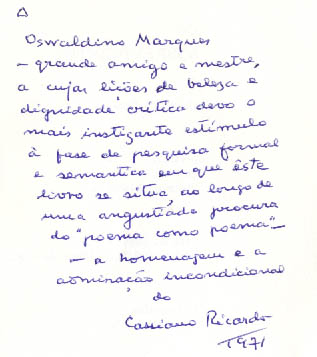 A
Oswaldino Marques
– grande amigo e mestre,
a cujas lições de beleza e
dignidade crítica devo o
mais instigante estímulo
à fase de pesquisa formal
e semantica em que êste
livro se situa ao longo de
uma angustiada procura
do "poema como poema" –
– a homenagem e a
admiração incondicional
do
Cassiano Ricardo
1971